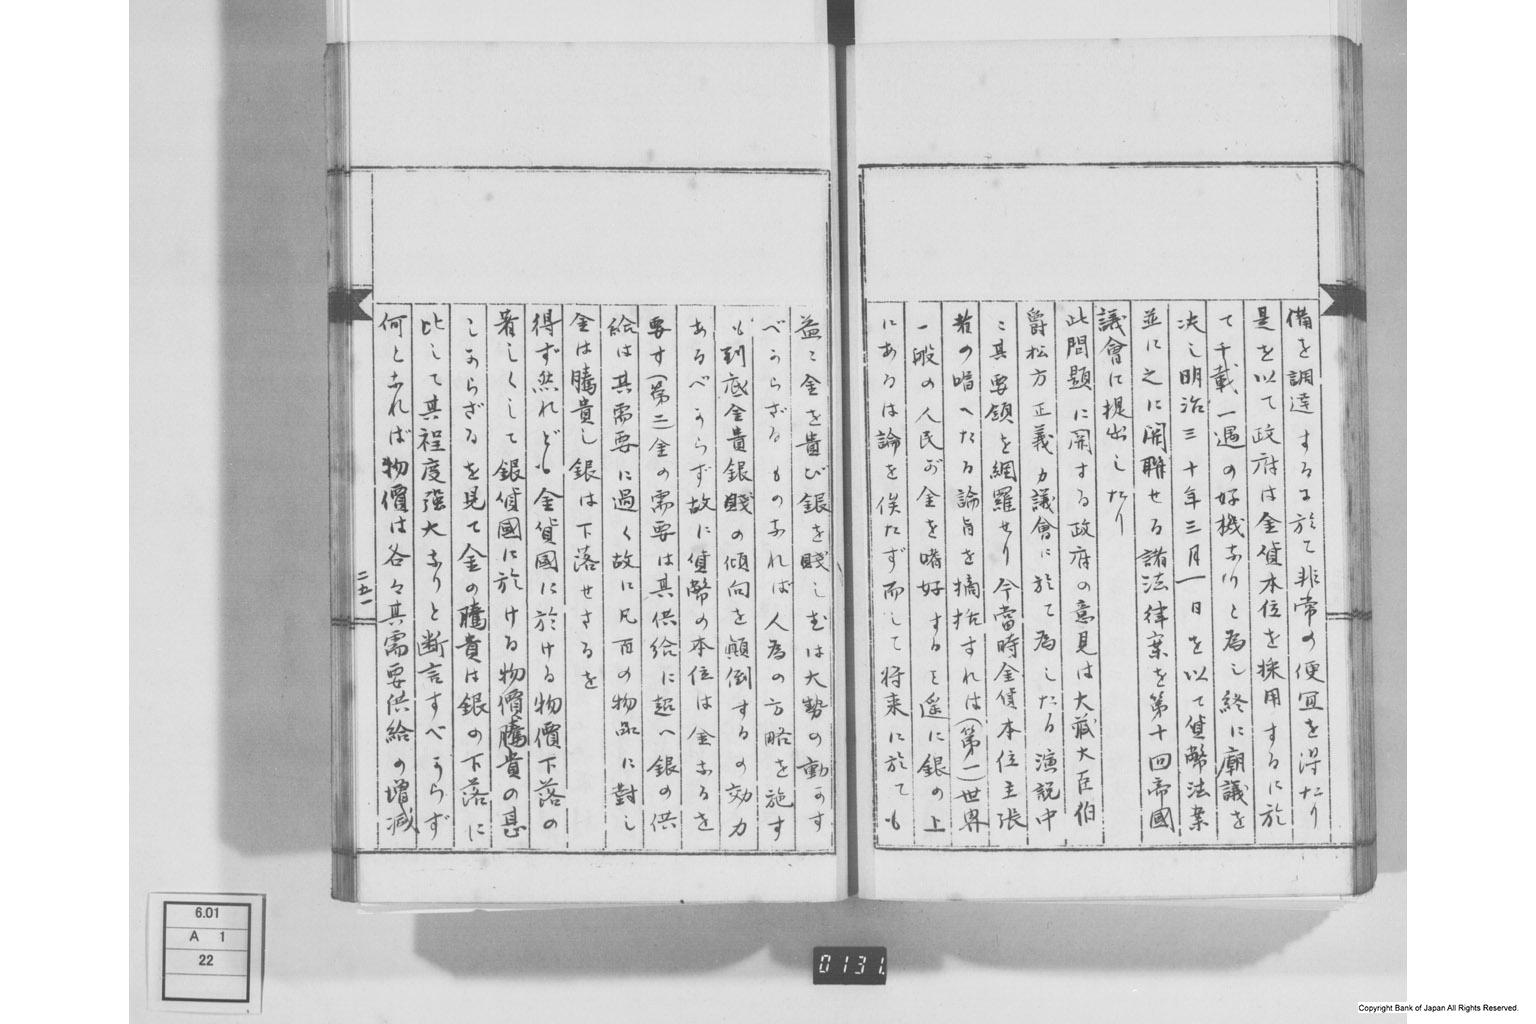 備を調達するに於て非常の便宜を得たり
是を以て政府は金貨本位を採用するに於
て千載一遇の好機なりと為し終に廟議を
决し明治三十年三月一日を以て貨幣法案
並に之に関聯せる諸法律案を第十回帝國
議會に提出したり
此問題に関する政府の意見は大蔵大臣伯
爵松方正義カ議會に於て為したる演説中
に其要領を網羅せり今當時金貨本位主張
者の唱へたる論旨を摘括すれは(第一)世界
一般の人民が金を嗜好すること遥に銀の上
にあるは論を俟たず而して将来に於ても
益々金を貴び銀を賤しむは大勢の動かす
べからざるものなれば人為の方略を施す
も到底金貴銀賤の傾向を顛倒するの効力
あるべからず故に貨幣の本位は金なるを
要す(第二)金の需要は其供給に超へ銀の供
給は其需要に過く故に凡百の物品に對し
金は騰貴し銀は下落せさるを
得ず然れども金貨國に於ける物價下落の
著しくして銀貨國に於ける物價騰貴の甚
しからざるを見て金の騰貴は銀の下落に
比して其程度強大なりと断言すべからず
何となれば物價は各々其需要供給の増减
二五一
6.01
A 1
22
0131.
Copyright Bank of Japan All Rights Reserved.